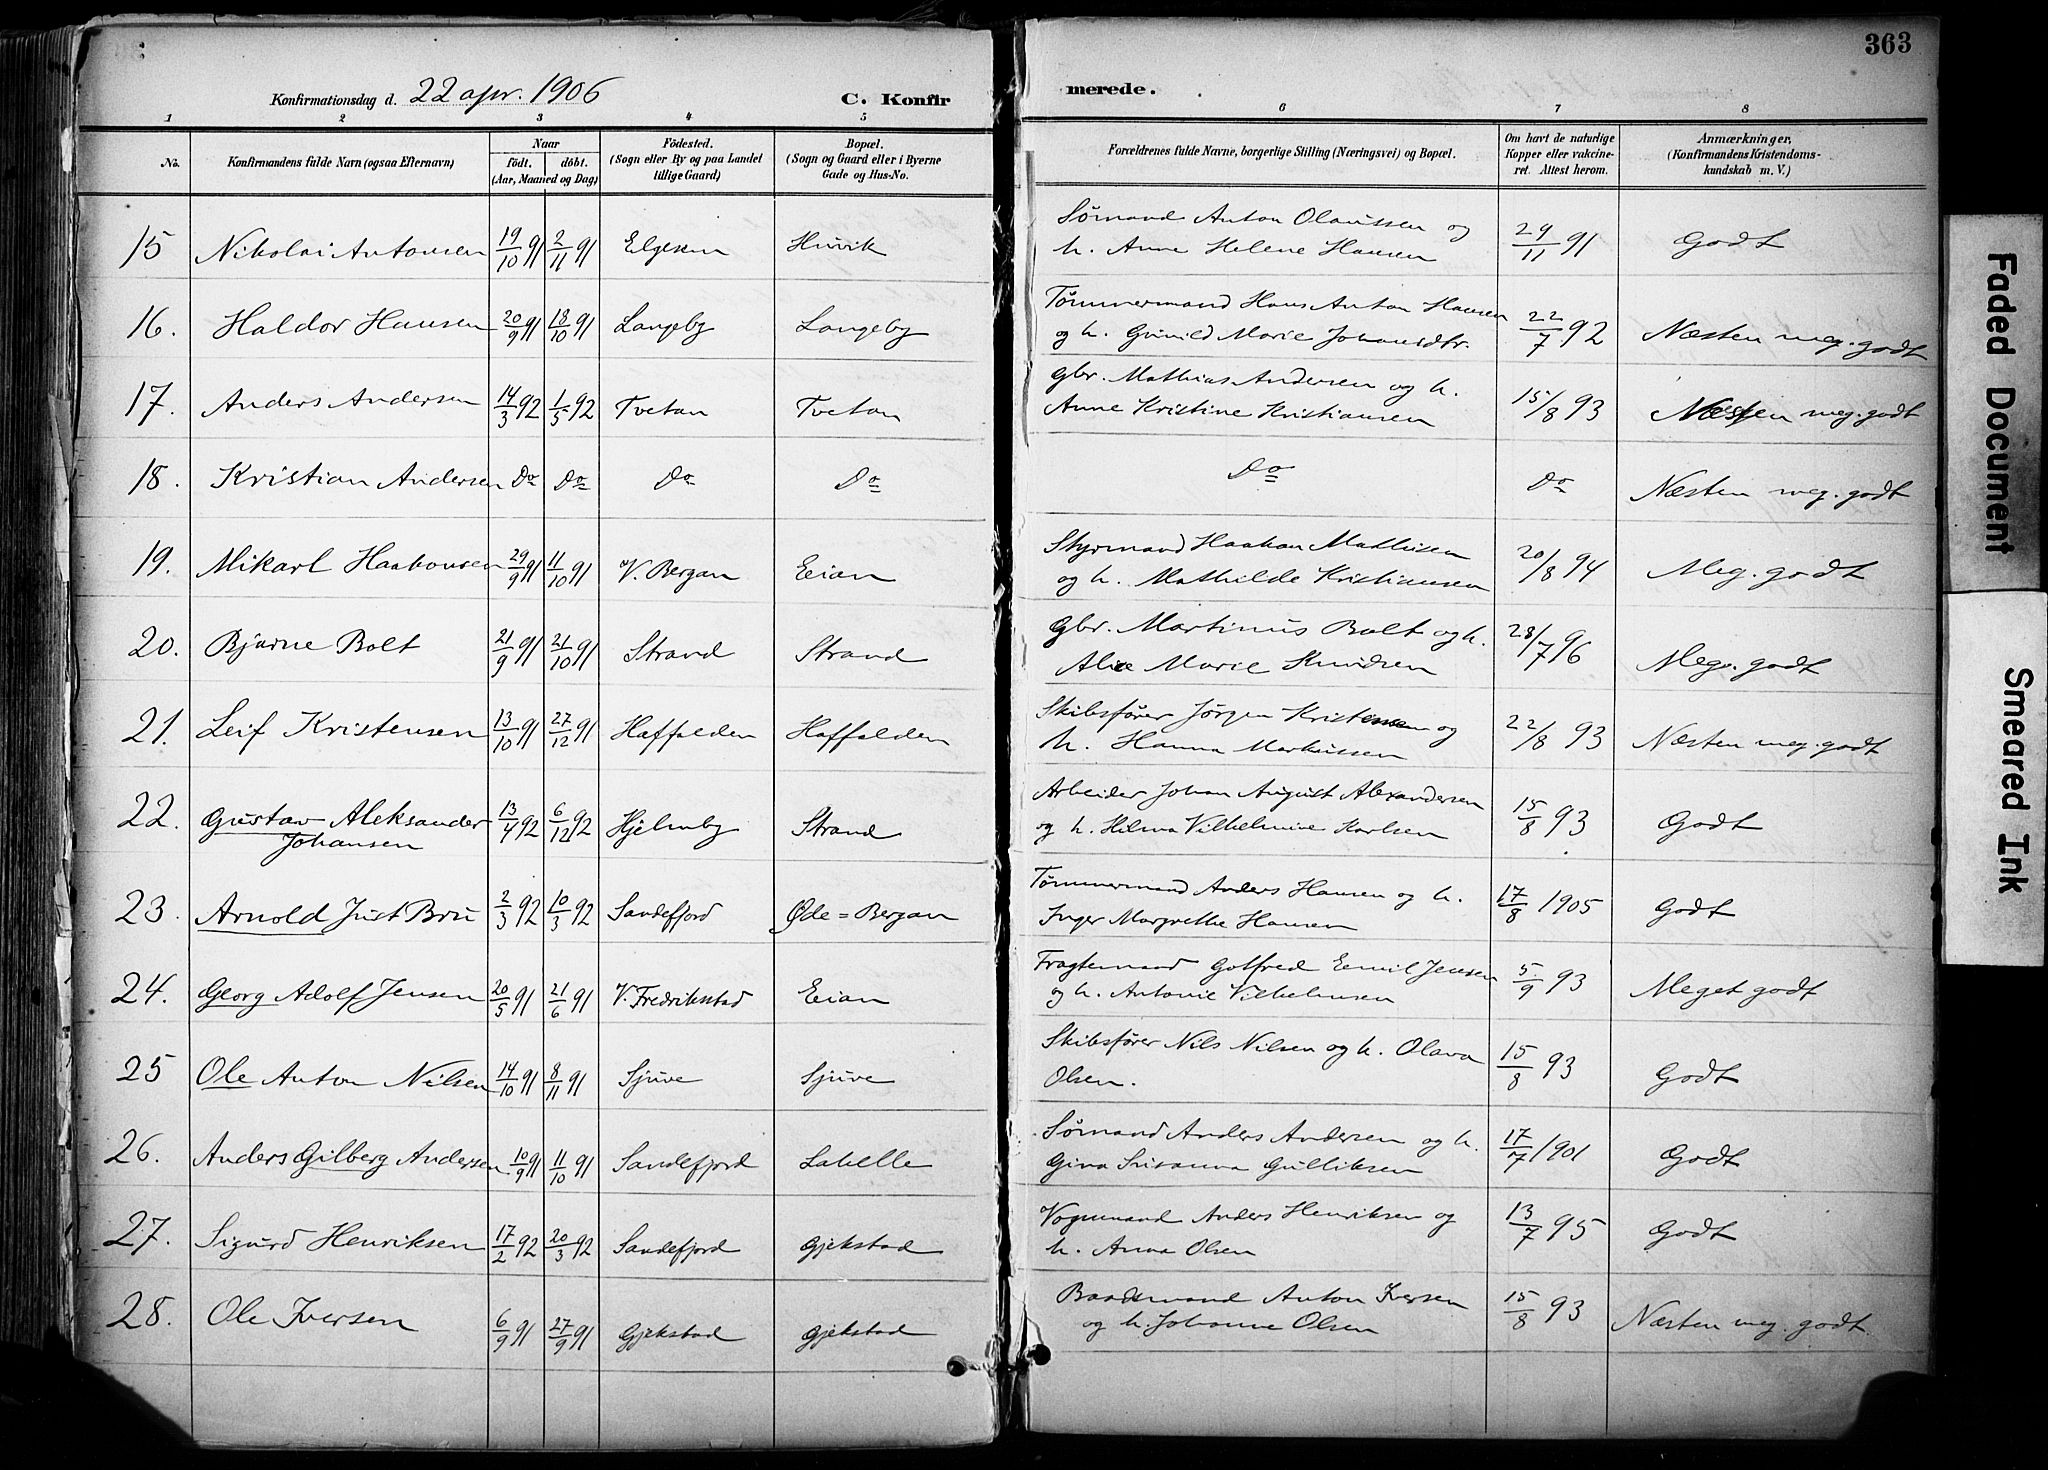 363
Konfirmationsdag d. 22 apr. 1906 C. Konfir merede.
1 2 3 4 5 6 7 8
No. Konfirmandens fulde Navn (ogsaa Efternavn) Naar födt. döbt. (Aar, Maaned og Dag) Födested. (Sogn eller By og paa Landet tillige Gaard) Bopæl. (Sogn og Gaard eller i Byerne Gade og Hus-No. Forældrenes fulde Navne, borgerlige Stilling (Næringsvei) og Bopæl. Om havt de naturlige Kopper eller vakcineret. Attest herom. Anmærkninger, (Konfirmandens Kristendomskundskab m. V.)
15 Nikolai Antonsen 19/10 91 2/11 91 Elgesem Huvik Sømand Anton Olaussen og
h. Anne Helene Hansen 29/11 91 Godt
16. Haldor Hansen 20/9 91 18/10 91 Langeby Langeby Tømmermand Hans Anton Hansen
og h. Gunild Marie Johansdtr. 22/7 92 Næsten meg. godt
17. Anders Andersen 14/3 92 1/5 92 Tvetan Tvetan Gbr. Mathias Andersen og h.
Anne Kristine Kristiansen 15/8 93 Næsten meg. godt
18. Kristian Andersen Do Do Do Do Do Do Næsten meg. godt
19. Mikarl Haakonsen 29/9 91 11/10 91 V. Bergan Eian Styrmand Haakon Mathisen
og h. Mathilde Kristiansen 20/8 94 Meg. godt
20. Bjarne Bolt 21/9 91 21/10 91 Strand Strand Gbr. Martinus Bolt og h.
Marie Knudsen 28/7 96 Meg. godt
21. Leif Kristensen 13/10 91 27/12 91 Haffalden Haffalden Skibsfører Jörgen Kristensen og
h. Hanna Markussen 22/8 93 Næsten meg. godt
22. Gustav Aleksander
Johansen 13/4 92 6/12 92 Hjelmby Strand Arbeider Johan August Alexandersen
og h. Hilma Vilhelmine Karlsen 15/8 93 Godt
23. Arnold Just Bru 2/3 92 10/3 92 Sandefjord Øde=Bergan Tømmermand Anders Hansen og h.
Inger Margrethe Hansen 17/8 1905 Godt
24. Georg Adolf Jensen 20/5 91 21/6 91 V. Fredrikstad Eian Fragtemand Gotfred Emil Jensen
og h. Antonie Vilhelmsen 5/9 93 Meget godt
25 Ole Anton Nilsen 14/10 91 8/11 91 Sjuve Sjuve Skibsfører Nils Nilsen og h. Olava
Olsen. 15/8 93 Godt
26. Anders Gilberg Andersen 10/9 91 11/10 91 Sandefjord Labelle Sømand Anders Andersen og h.
Gina Susanna Gulliksen 17/7 1901 Godt
27. Sigurd Henriksen 17/2 92 20/3 92 Sandefjord Gjekstad Vognmand Anders Henriksen og
h. Anna Olsen 13/7 95 Godt
28. Ole Iversen 6/9 91 27/9 91 Gjekstad Gjekstad Baadsmand Anton Iversen
og h. Johanne Olsen 15/8 93 Næsten meg. godt
Faded Document
Smeared Ink